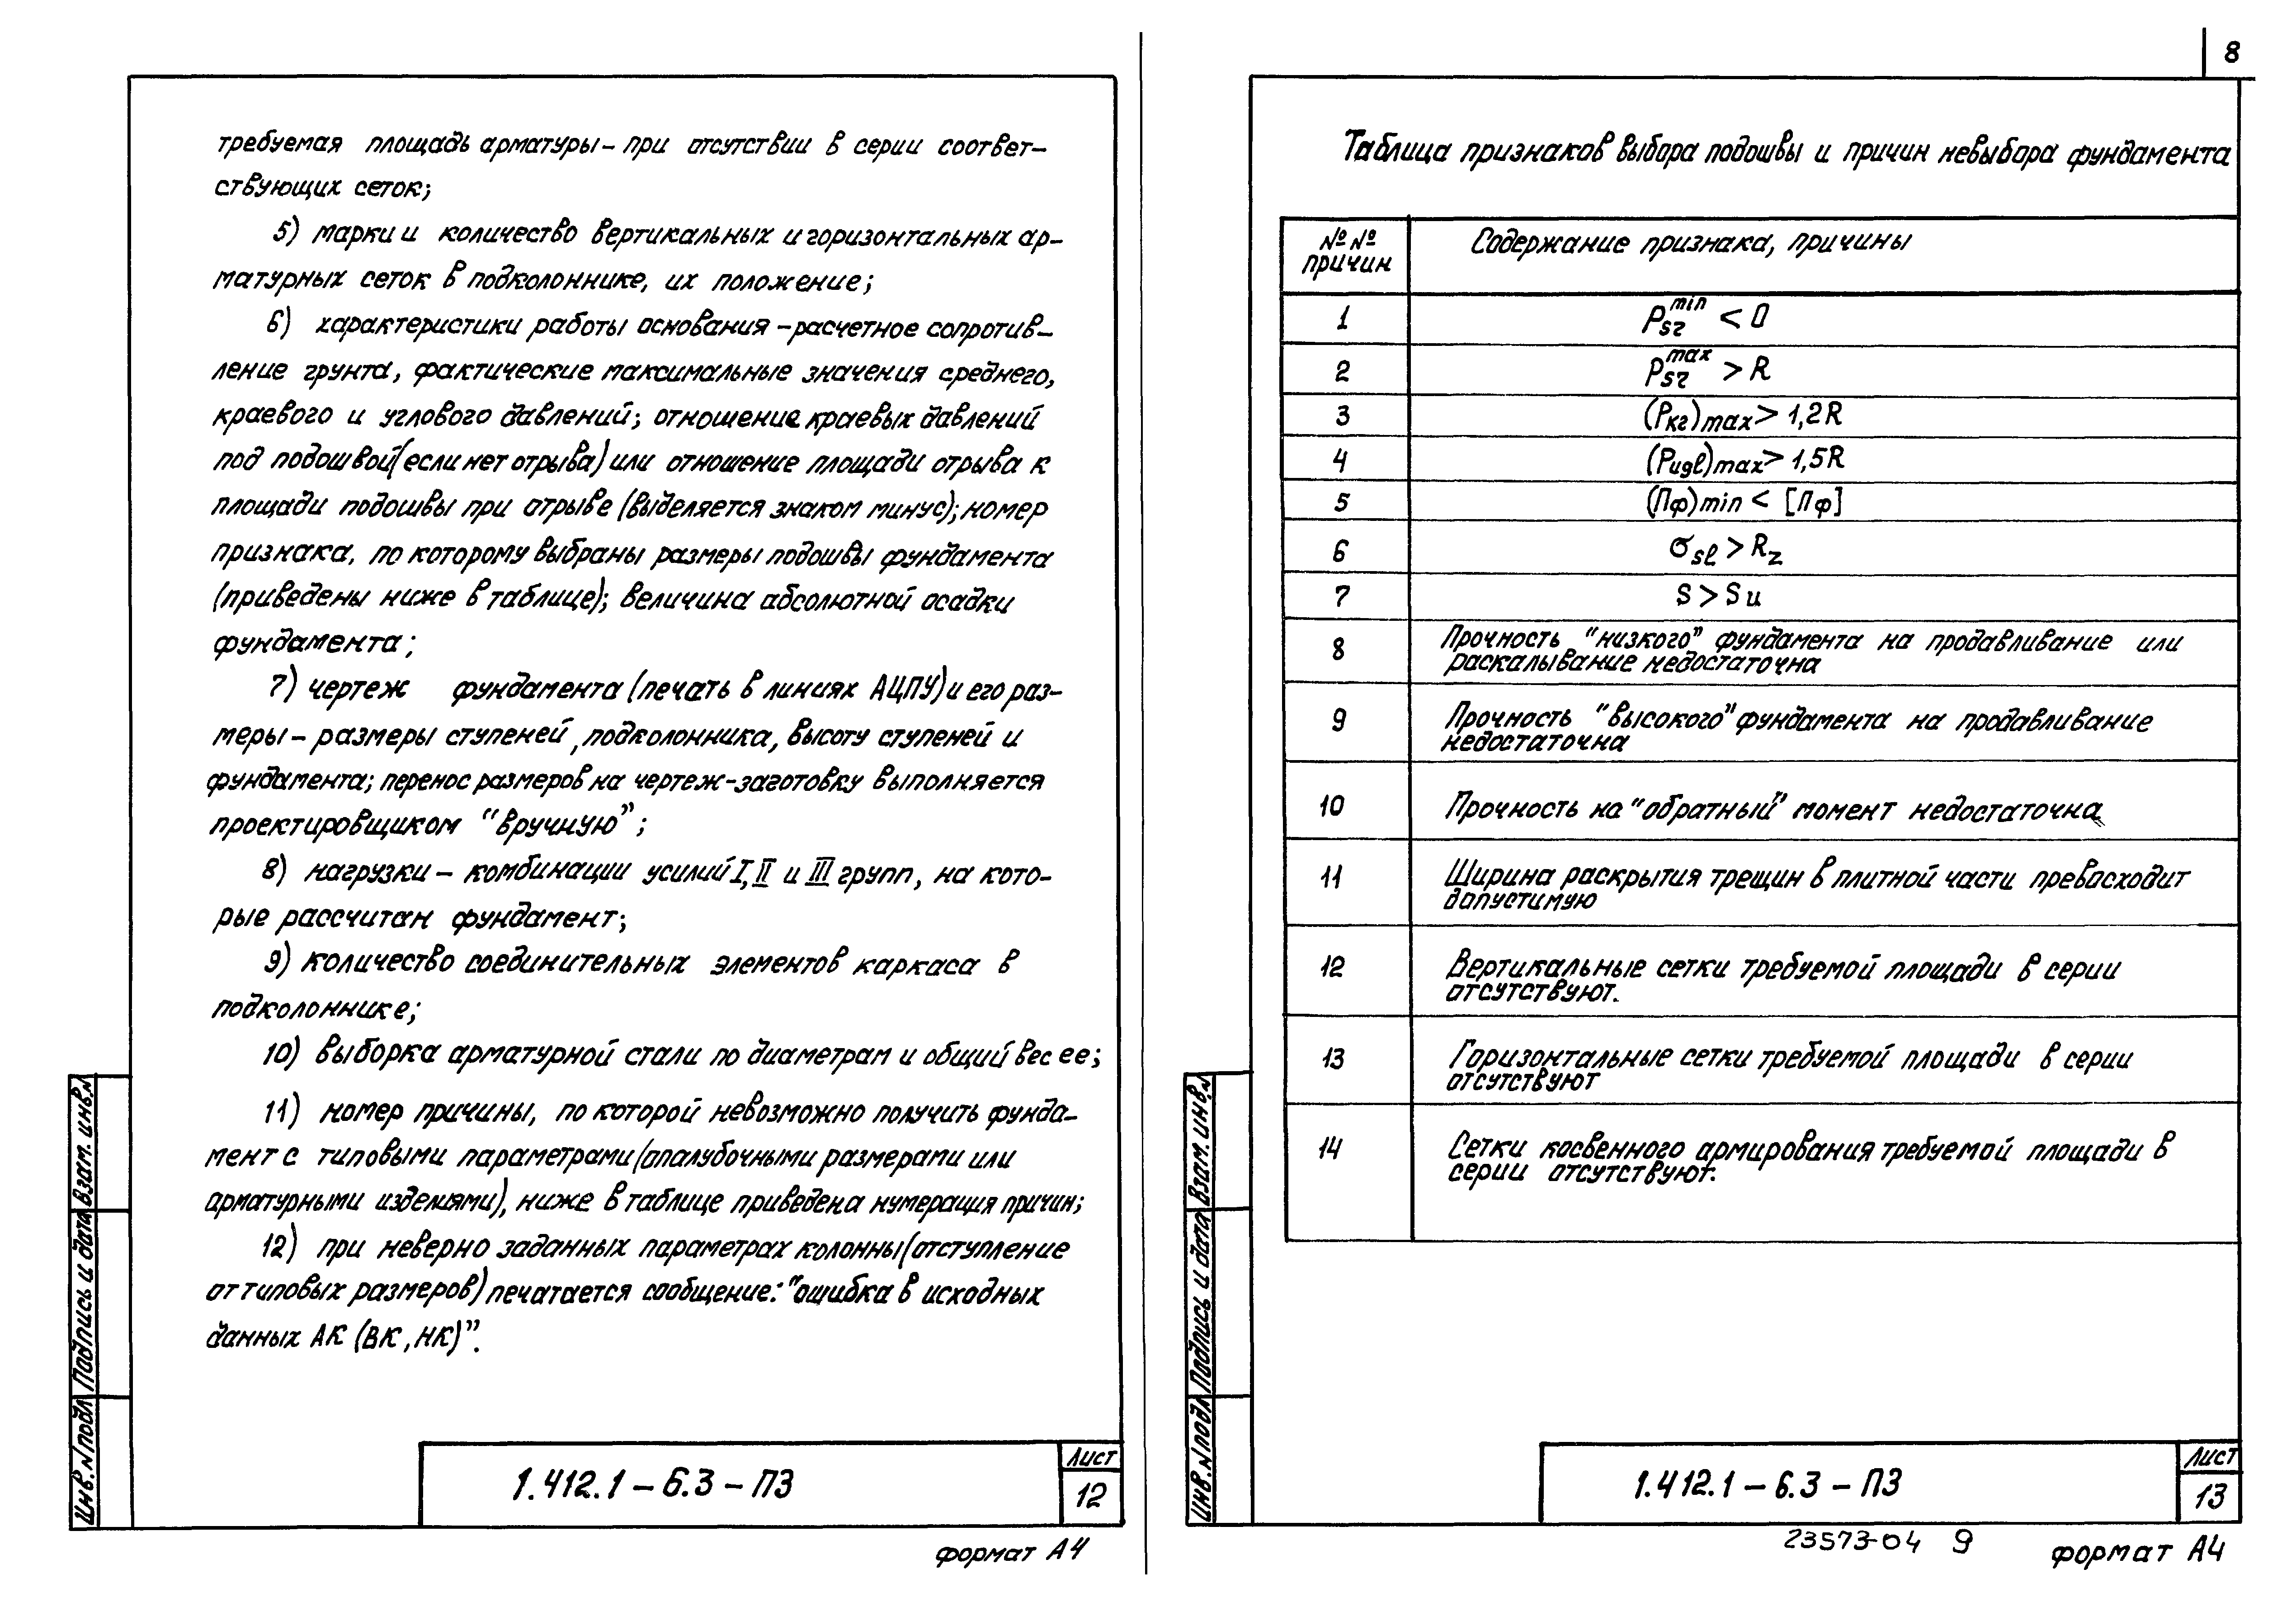 требуемая площадь арматуры – при отсутствии в серии соответ-
ствующих сеток;
5) марки и количество вертикальных и горизонтальных ар-
матурных сеток в подколоннике, их положение;
6) характеристики работы основания – расчетное сопротив-
ление грунта, фактические максимальные значения среднего,
краевого и углового давлений; отношение краевых давлений
под подошвой (если нет отрыва) или отношение площади отрыва к
площади подошвы при отрыве (выделяется знаком минус); номер
признака, по которому выбраны размеры подошвы фундамента
(приведены ниже в таблице); величина абсолютной осадки
фундамента;
7) чертеж фундамента (печать в линиях АЦПУ) и его раз-
меры – размеры ступеней, подколонника, высоту ступеней и
фундамента; перенос размеров на чертеж-заготовку выполняется
проектировщиком "вручную";
8) нагрузки – комбинации усилий I, II и III групп, на кото-
рые рассчитан фундамент;
9) количество соединительных элементов каркаса в
подколоннике;
10) выборка арматурной стали по диаметрам и общий вес ее;
11) номер причины, по которой невозможно получить фунда-
мент с типовыми параметрами (опалубочными размерами или
арматурными изделиями), ниже в таблице приведена нумерация причин;
12) при неверно заданных параметрах колонны (отступление
от типовых размеров) печатается сообщение: "ошибка в исходных
данных АК (ВК, НК)".
Инв. N подл Подпись и дата Взам. инв. N
1.412.1 – 6.3 – ПЗ
Лист
12
формат А4
8
Таблица признаков выбора подошвы и причин невыбора фундамента
№ № причин Содержание признака, причины
1 Psr min < 0
2 Psr max > R
3 (Pкг)max > 1,2R
4 (Pugl)max > 1,5R
5 (Пф)min < [Пф]
6 σsl > Rz
7 S > Su
8 Прочность "низкого" фундамента на продавливание или
раскалывание недостаточна
9 Прочность "высокого" фундамента на продавливание
недостаточна
10 Прочность на "обратный" момент недостаточна
11 Ширина раскрытия трещин в плитной части превосходит
допустимую
12 Вертикальные сетки требуемой площади в серии
отсутствуют.
13 Горизонтальные сетки требуемой площади в серии
отсутствуют
14 Сетки косвенного армирования требуемой площади в
серии отсутствуют.
Инв. N подл Подпись и дата Взам. инв. N
1.412.1 – 6.3 – ПЗ
Лист
13
23573-04 9
формат А4